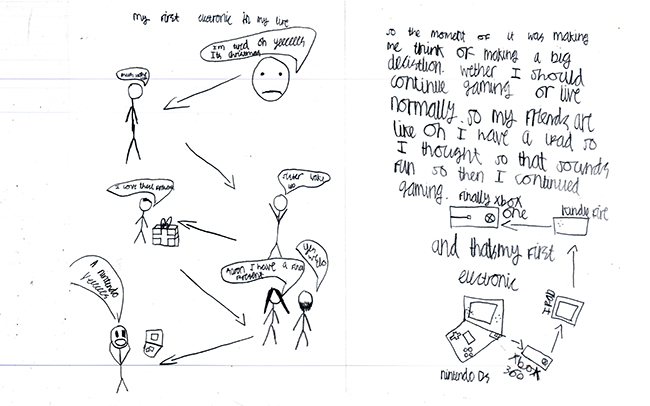 my first electronic in my live
I'm tired oh yeeeeees
Its christmas
mum wake
sister wake
up
I love these
Aaron I have a final
present
yes
A nintendo
yeeeees
so the moment of it was making
me think of making a big
decistion. wether I should
continue gaming or live
normally. so my friends are
like oh I have a ipad so
I thought so that sounds
fun so then I continued
gaming.
finally xbox
one
kindle fire
and thats my first
electronic
IPAD
xbox
360
nintendo Ds